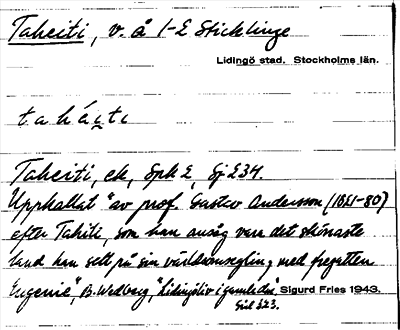 Taheiti, v. å 1-E Sticklinge
Lidingö stad. Stockholms län.
tahá̤iti
Taheiti, ek, Spk 2, Sj 234.
Uppkallat "av prof. Gustav Andersson (1821-80)
efter Tahiti, som han ansåg vara det skönaste
land han sett på sin världsomsegling med fregatten
Eugenie", B. Wedberg, "Lidingöliv i gamla da'r" Sigurd Fries 1943.
Sid 223.